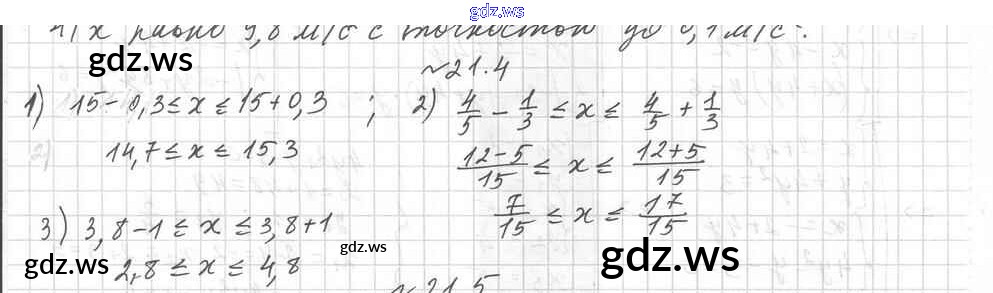 gdz.ws
х равно 9,8 м/с² с точностью до 0,1 м/с².
gdz.ws
~21.4
1) 15-0,3≤x≤15+0,3 ; 2) 4/5 - 1/3 ≤ x ≤ 4/5 + 1/3
14,7≤x≤15,3
(12-5)/15 ≤ x ≤ (12+5)/15
7/15 ≤ x ≤ 17/15
3) 3,8-1 ≤ x ≤ 3,8+1
gdz.ws
gdz.ws
gdz.ws
2,8 ≤ x ≤ 4,8
~21.5